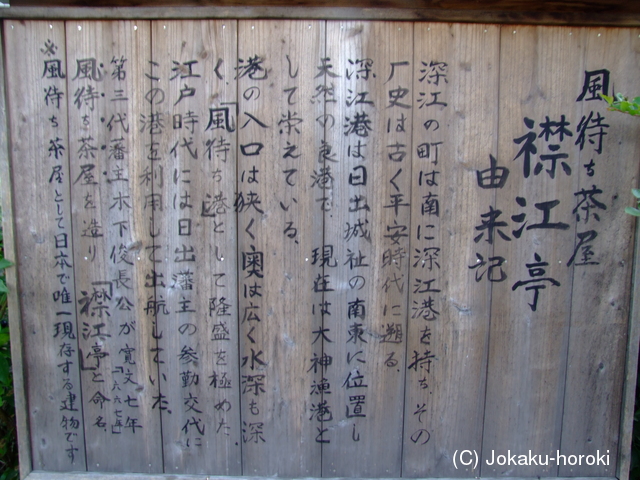 風待ち茶屋
襟江亭
由来記
深江の町は南に深江港を持ち、その
厂史は古く平安時代に遡る。
深江港は日出城祉の南東に位置し
天然の良港で、現在は大神漁港と
して栄えている。
港の入口は狭く奥は広く水深も深
く、「風待ち港」として隆盛を極めた。
江戸時代には日出藩主の参勤交代に
この港を利用して出航していた。
第三代藩主木下俊長公が寛文七年「一六六七年」
風待ち茶屋を造り「襟江亭」と命名。
※風待ち茶屋として日本で唯一現存する建物です
(C) Jokaku-horoki